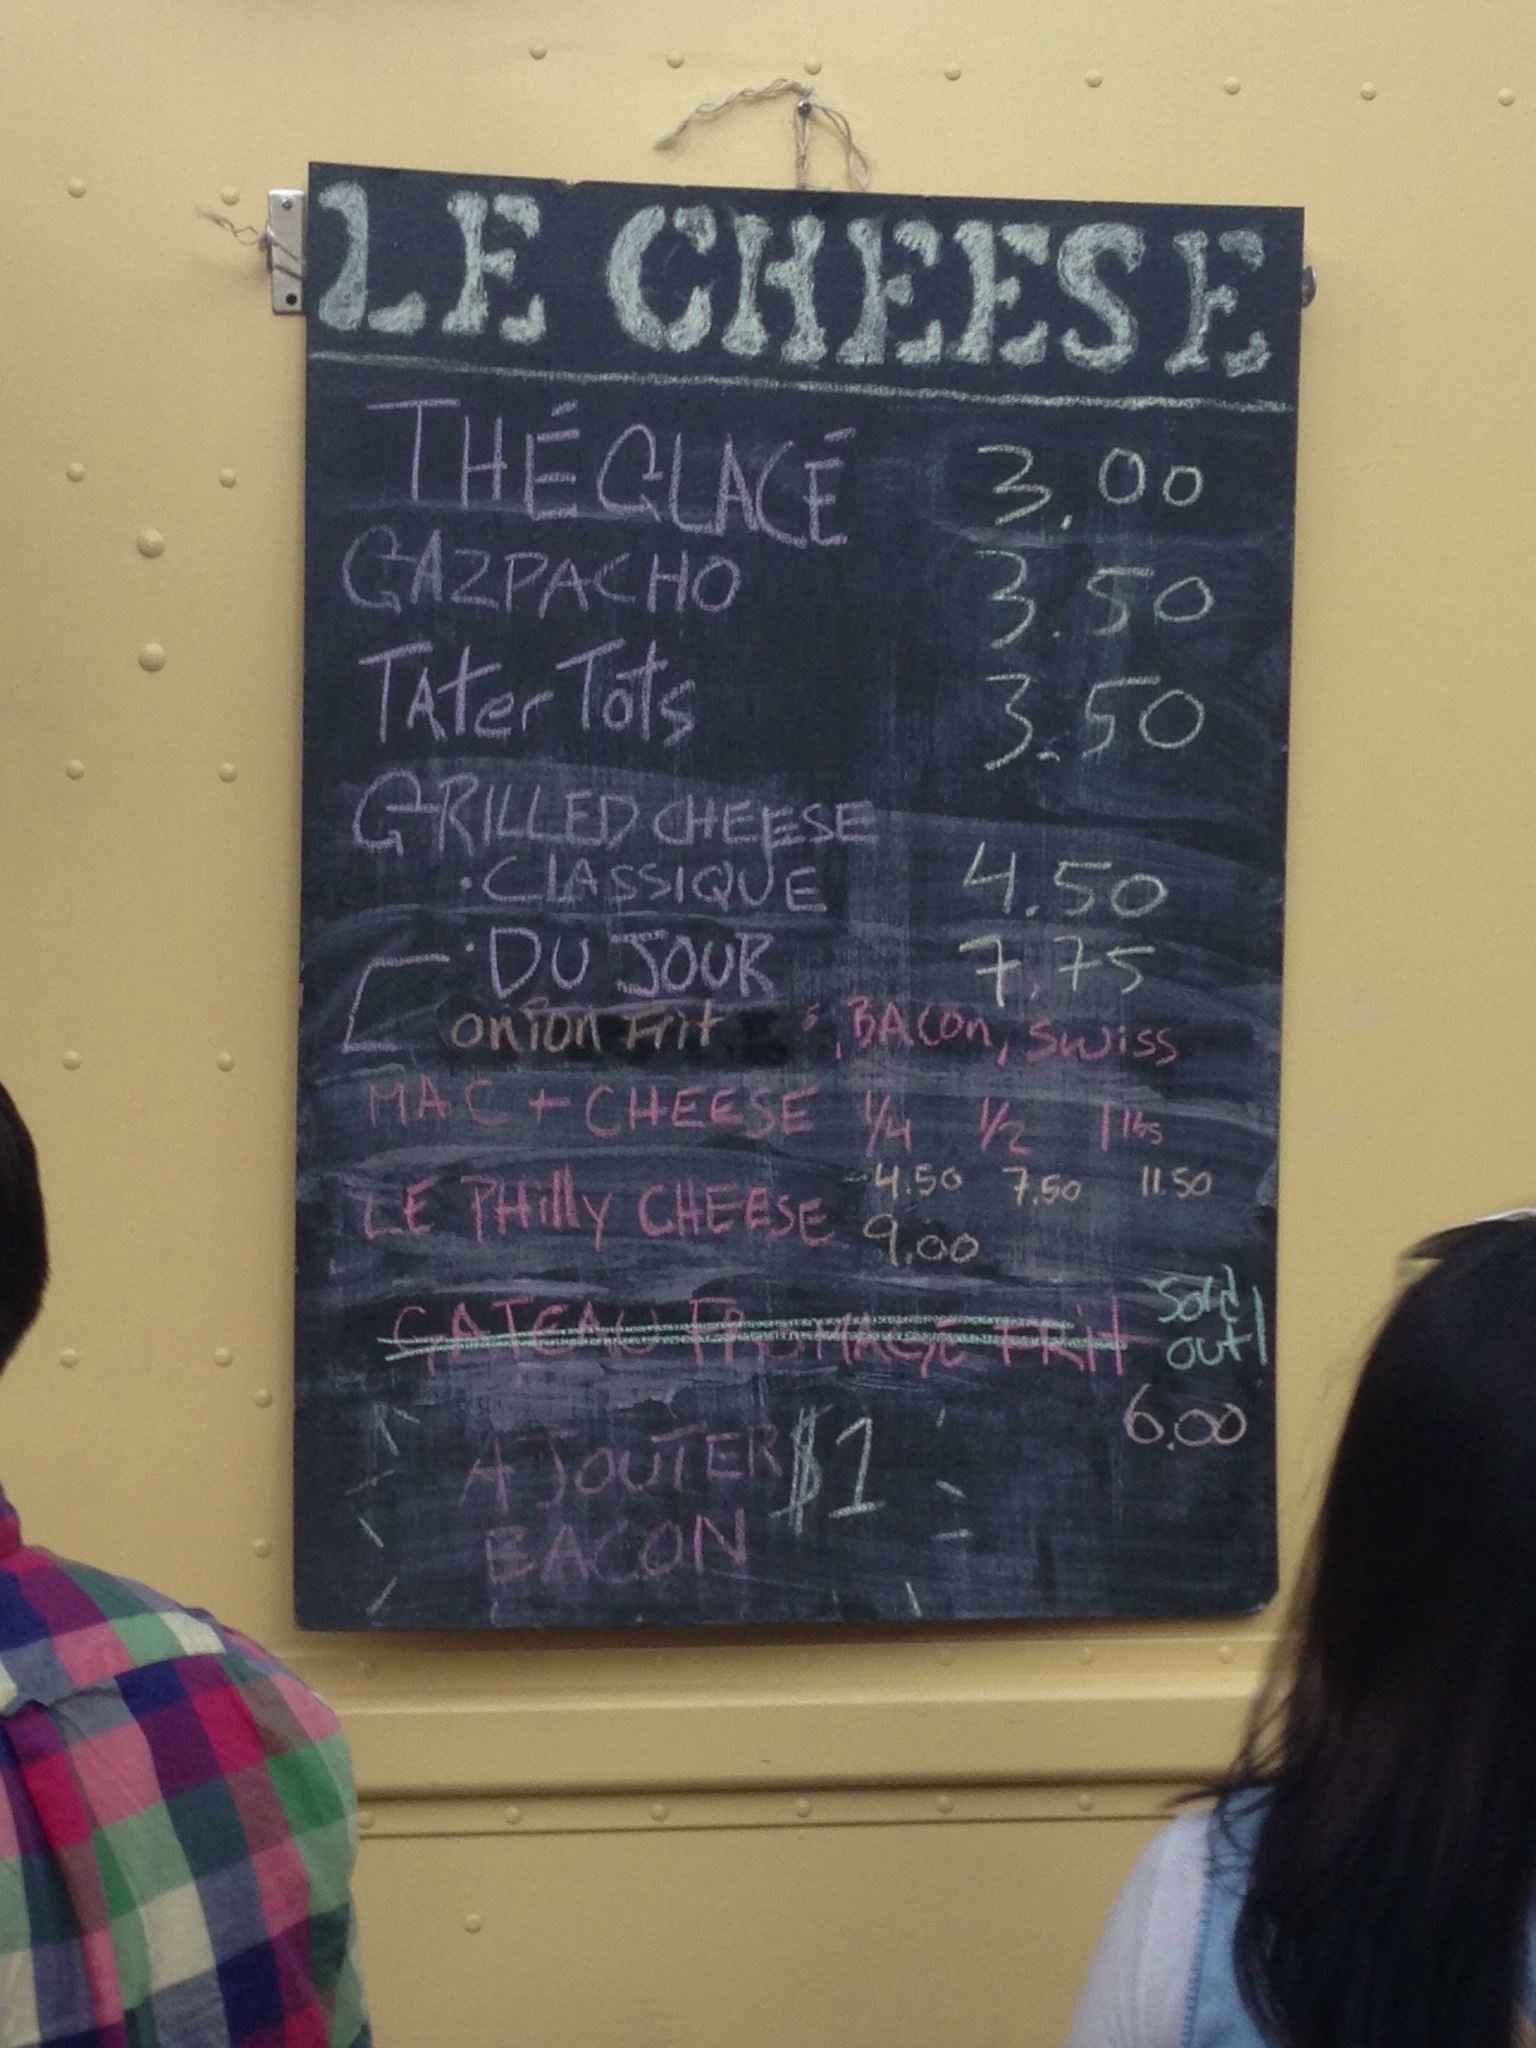 LE CHEESE
THÉ GLACÉ 3.00
GAZPACHO 3.50
TAter Tots 3.50
GRILLED CHEESE
·CLASSIQUE 4.50
·DU JOUR 7.75
onion Frit ; BACon, Swiss
MAC + CHEESE 1/4 1/2 1 lbs
4.50 7.50 11.50
LE PHilly CHEESE 9.00
GATEAU FROMAGE FRIT Sold out!
6.00
AJOUTER $1
BACON